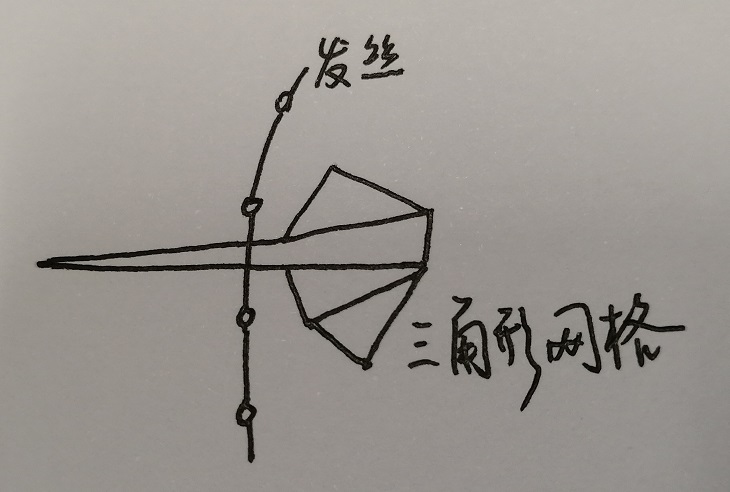 发丝
三角形网格